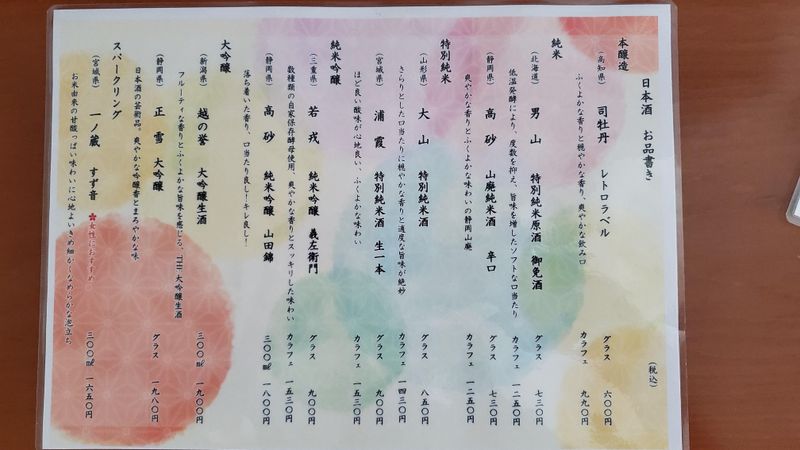 日本酒 お品書き
(税込)
本醸造
(高知県) 司牡丹 レトロラベル グラス 六〇〇円
ふくよかな香りと穏やかな香り、爽やかな飲み口 カラフェ 九九〇円
純米
(北海道) 男山 特別純米原酒 御免酒 グラス 七三〇円
低温発酵により、度数を抑え、旨味を増したソフトな口当たり カラフェ 一二五〇円
(静岡県) 高砂 山廃純米酒 辛口 グラス 七三〇円
爽やかな香りとふくよかな味わいの静岡山廃 カラフェ 一二五〇円
特別純米
(山形県) 大山 特別純米酒 グラス 八五〇円
さらりとした口当たりに穏やかな香りと適度な旨味が絶妙 カラフェ 一四三〇円
(宮城県) 浦霞 特別純米酒 生一本 グラス 九〇〇円
ほど良い酸味が心地良い、ふくよかな味わい カラフェ 一五三〇円
純米吟醸
(三重県) 若戎 純米吟醸 義左衛門 グラス 九〇〇円
数種類の自家保存酵母使用、爽やかな香りとスッキリした味わい カラフェ 一五三〇円
(静岡県) 高砂 純米吟醸 山田錦 三〇〇㎖ 一八〇〇円
落ち着いた香り、口当たり良し!キレ良し!
大吟醸
(新潟県) 越の誉 大吟醸生酒 三〇〇㎖ 一九〇〇円
フルーティな香りとふくよかな旨味を感じる、THE 大吟醸生酒
(静岡県) 正雪 大吟醸 グラス 一九八〇円
日本酒の芸術品。爽やかな吟醸香とまろやかな味
スパークリング
(宮城県) 一ノ蔵 すず音 女性におすすめ 三〇〇㎖ 一六五〇円
お米由来の甘酸っぱい味わいに心地よいきめ細かくなめらかな泡立ち